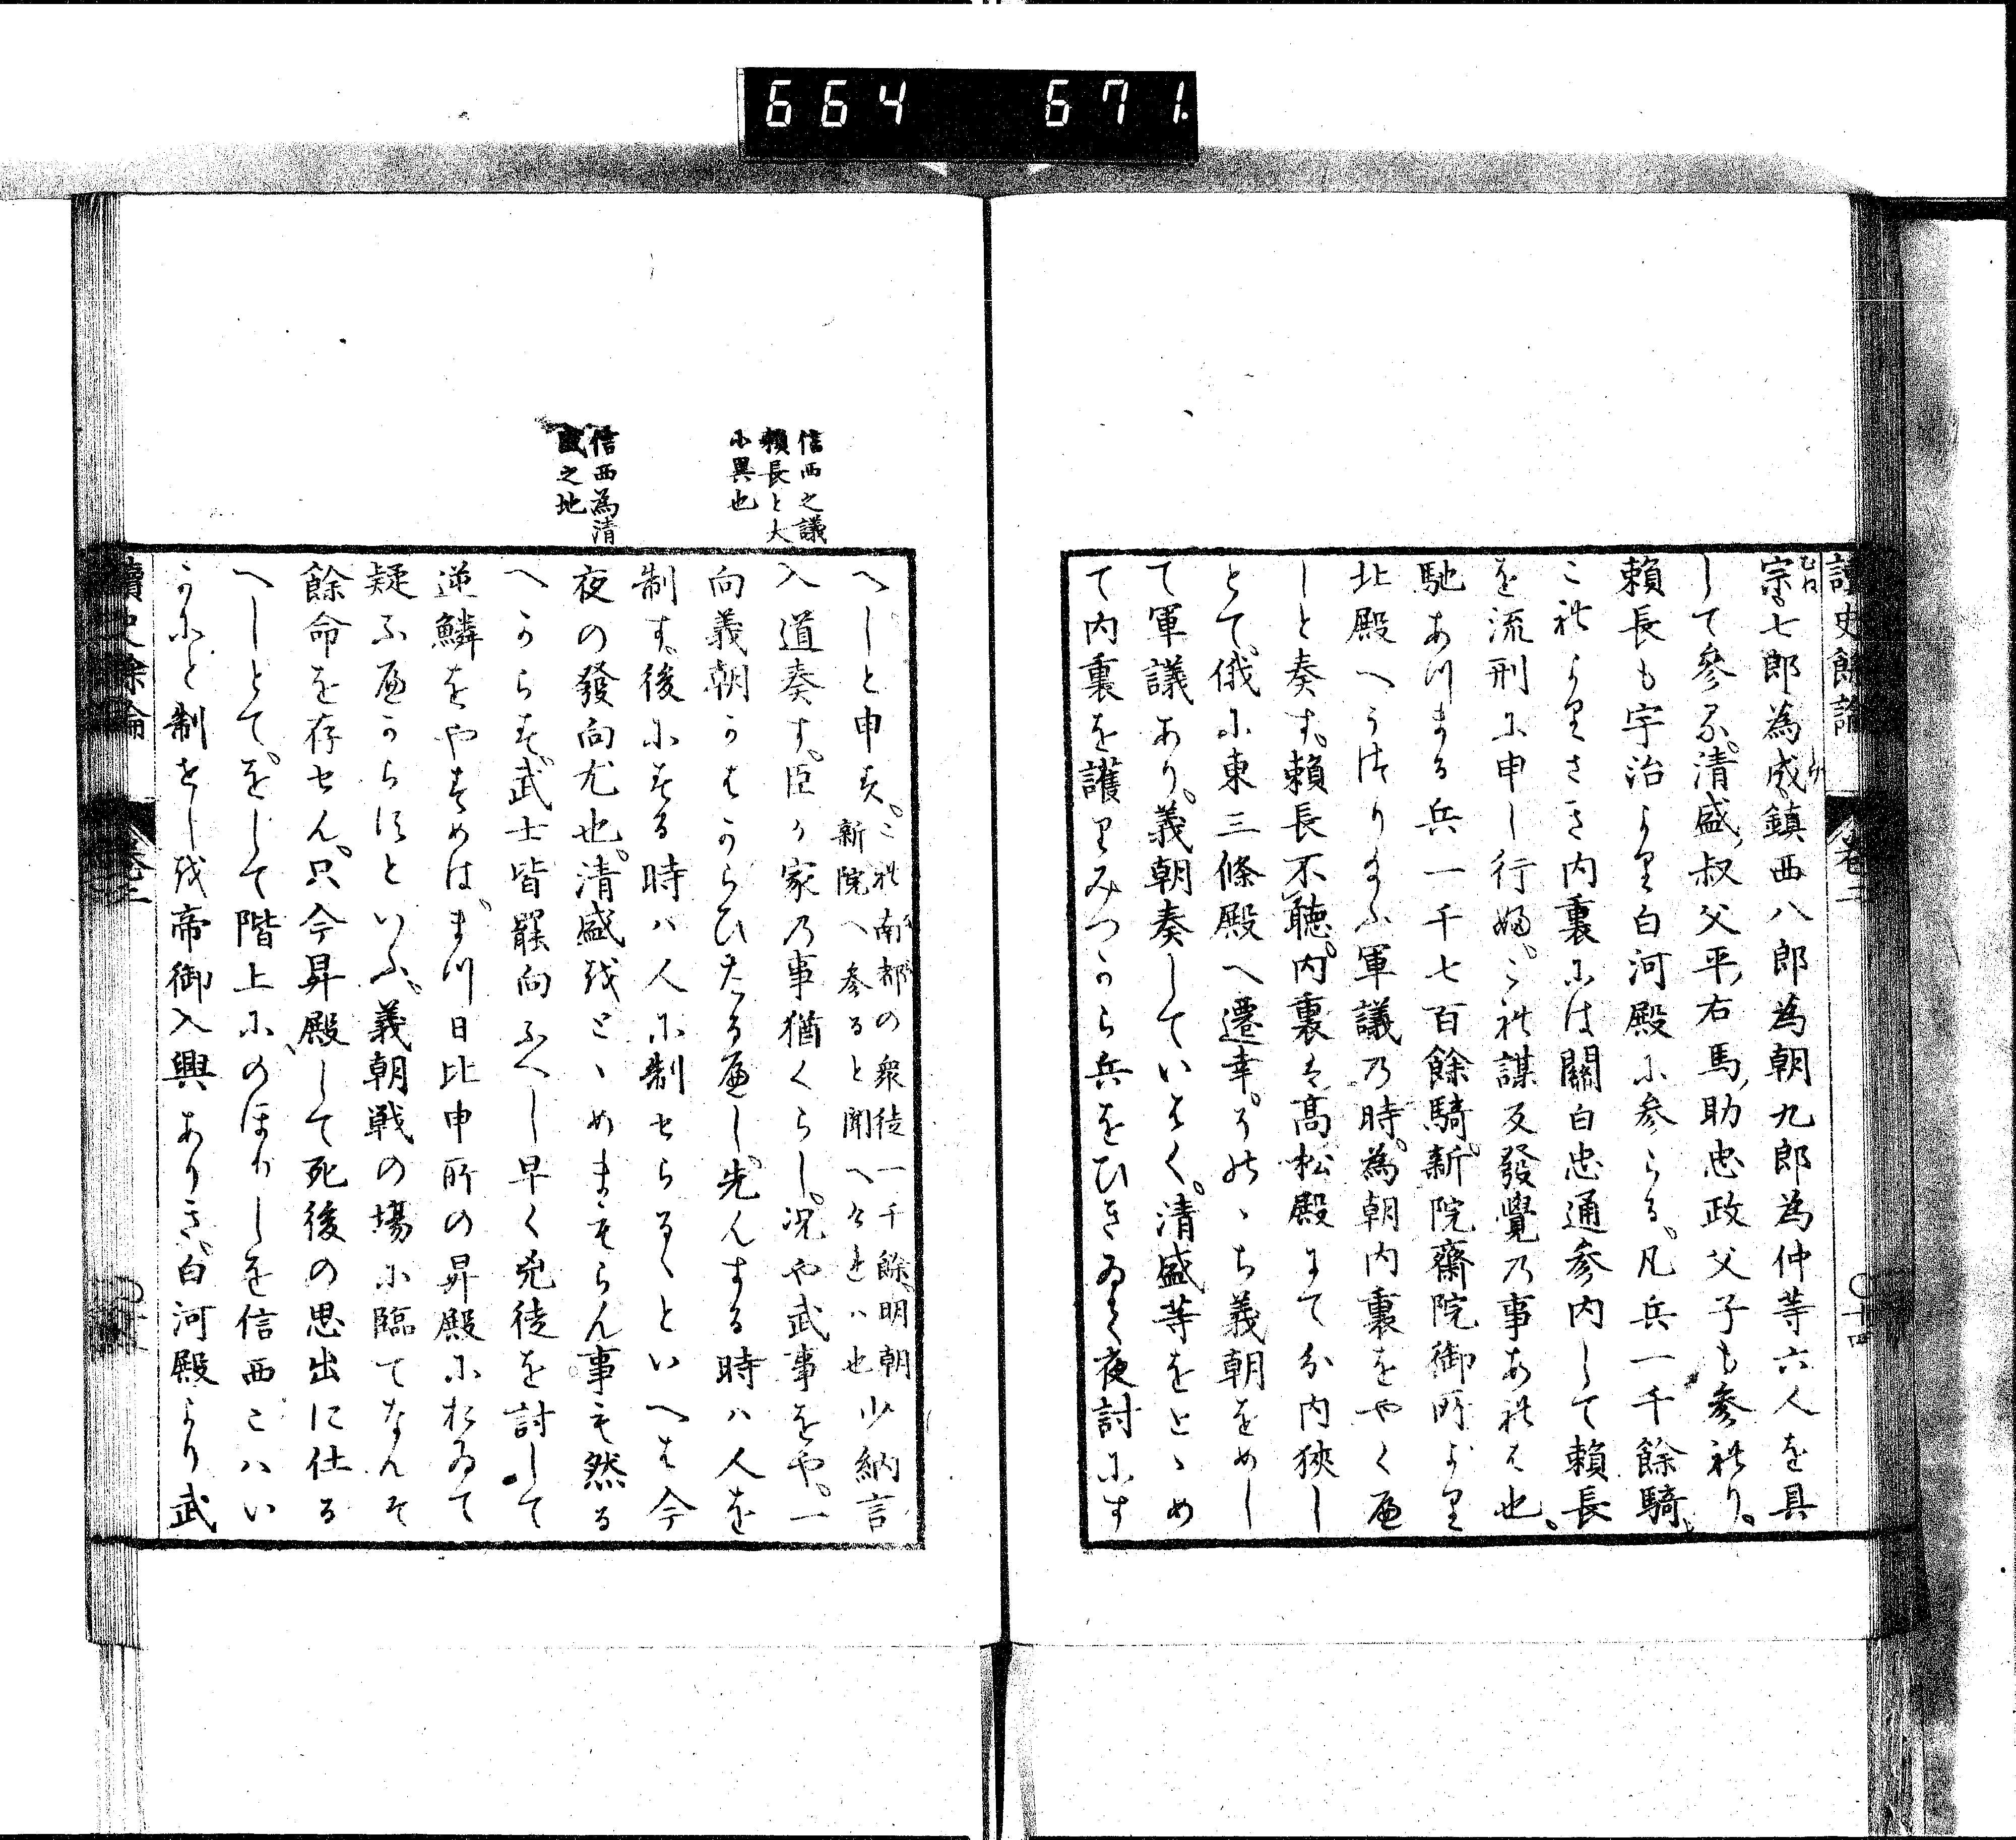 664 671.
讀史餘論 卷二 〇十四
宗七郎為成鎮西八郎為朝九郎為仲等六人を具
して參る。清盛、叔父平、右馬、助忠政父子も參れり。
賴長も宇治より白河殿に參らる。凡兵一千餘騎。
これよりさき内裏には關白忠通參内して賴長
を流刑に申し行ふ。これ謀反發覺の事あれは也。
馳あつまる兵一千七百餘騎。新院齋院御所より
北殿へうつり給ふ軍議の時。為朝内裏をやくへ
しと奏す。賴長不聽。内裏は髙松殿にて分内狹し
とて。俄に東三條殿へ遷幸。そのゝち義朝をめし
て軍議あり。義朝奏していはく。清盛等をとゝめ
て内裏を護りみつから兵をひきゐて夜討にす
信西之議
賴長と大
小異也
信西為清
盛之地
へしと申す。これ南都の衆徒一千餘、明朝
新院へ參ると聞へけれハ也 少納言
入道奏す。臣か家乃事猶くらし。况や武事をや。一
向義朝かはからひたるへし。先んする時ハ人を
制す。後にする時ハ人に制せらるゝといへは今
夜の發向尤也。清盛をとゝめまもらん事も然る
へからす。武士皆罷向ふへし早く兇徒を討して
逆鱗をやすめは。まつ日比申所の昇殿におゐて
疑ふへからすといふ。義朝戦の場に臨てなんそ
餘命を存せん。只今昇殿して死後の思出に仕る
へしとて。をして階上にのほりしを信西こハい
かにと制せしを帝御入興ありき。白河殿より武
讀史餘論 卷二